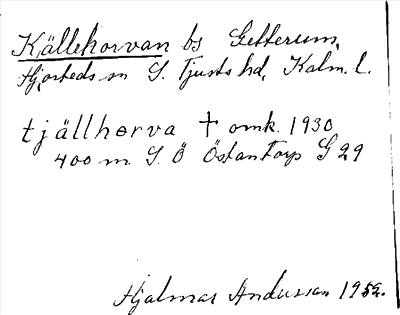 Källehorvan bs Getterum,
Hjorteds sn S. Tjusts hd, Kalm. l.
tjällhorva † omk. 1930
400 m S. Ö Östantorp G 29
Hjalmar Andersson 1952.